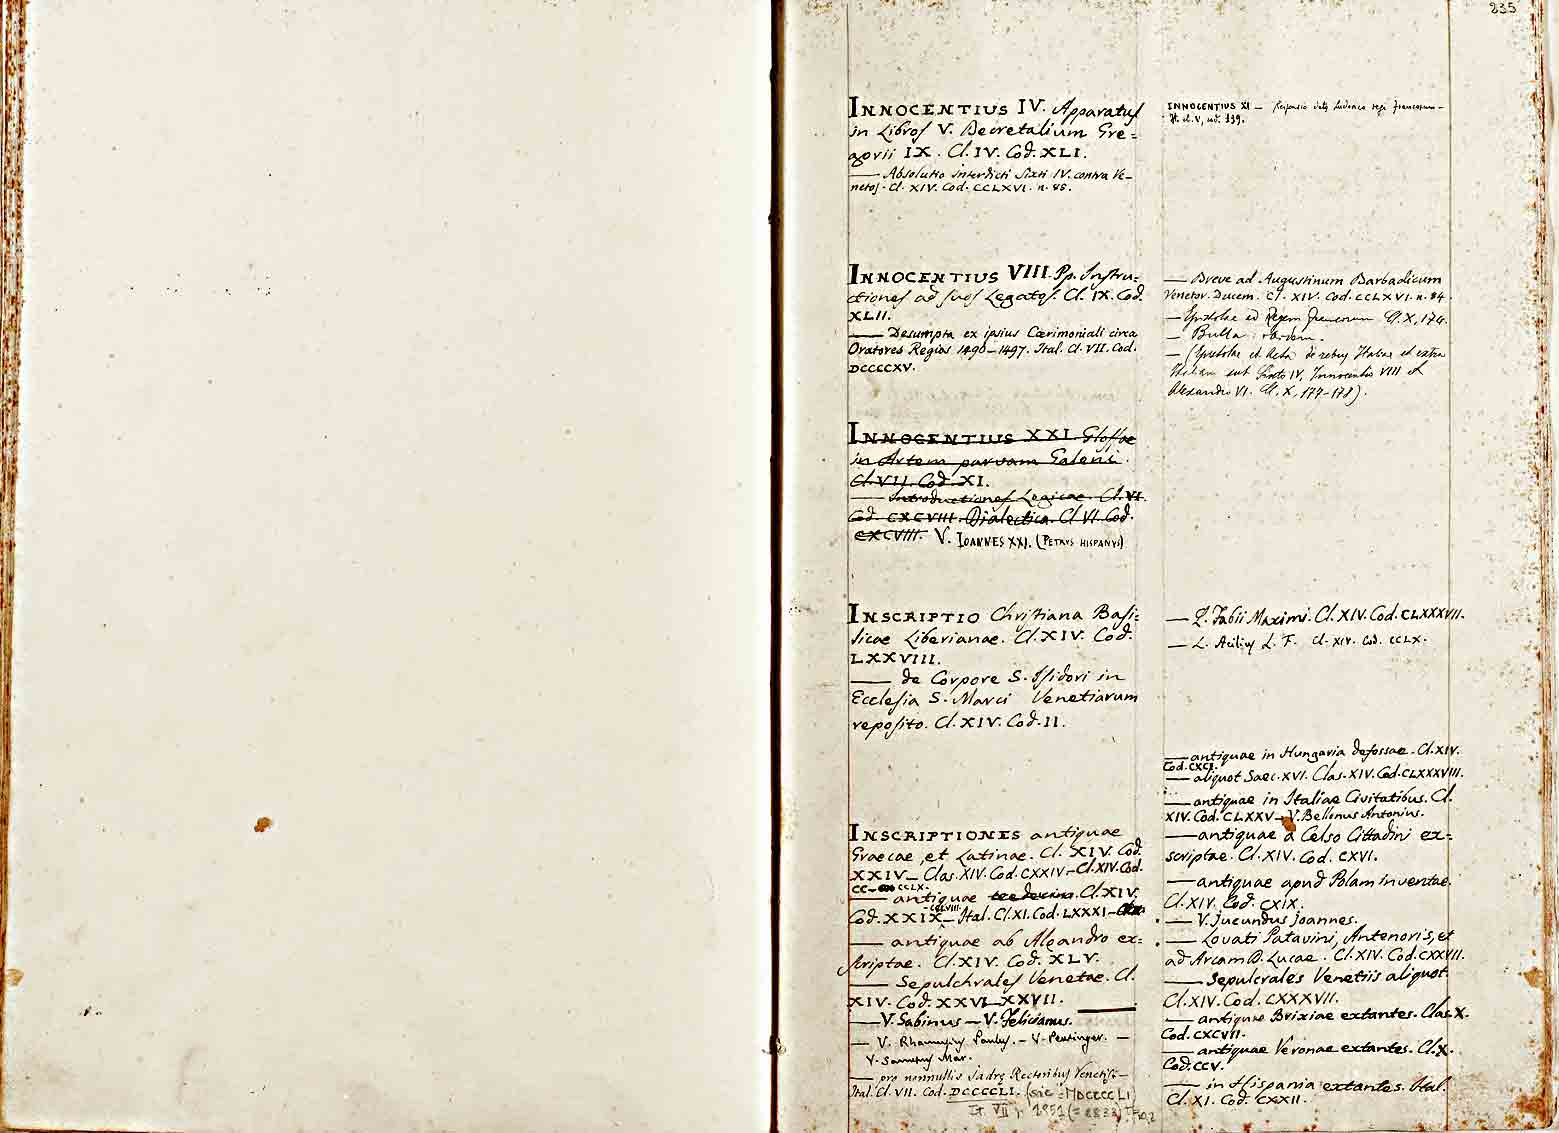 235
INNOCENTIUS IV. Apparatus
in Libros V. Decretalium Gre=
gorii IX. Cl. IV. Cod. XLI.
— Absolutio Interdicti Sixti IV. contra Ve-
netos. Cl. XIV. Cod. CCLXVI. n. 85.
INNOCENTIUS VIII. Pp. Instru-
ctiones ad suos Legatos. Cl. IX. Cod.
XLII.
— Desumpta ex ipsius Cærimoniali circa
Oratores Regios 1490-1497. Ital. Cl. VII. Cod.
DCCCCXV.
INNOCENTIUS XXI. Glossae
in Artem parvam Galeni.
Cl. VII. Cod. XI.
— Introductiones Logicae. Cl. VI.
Cod. CXCVIII. Dialectica. Cl VI. Cod.
CXCVIII. V. IOANNES XXI. (PETRUS HISPANUS)
INSCRIPTIO Christiana Basi=
licae Liberianae. Cl. XIV. Cod.
LXXVIII.
— de Corpore S. Isidori in
Ecclesia S. Marci Venetiarum
reposito. Cl. XIV. Cod. II.
INSCRIPTIONES antiquae
Graecae, et Latinae. Cl. XIV. Cod.
XXIV — Clas. XIV. Cod. CXXIV — Cl. XIV. Cod.
CC — CCLX.
— antiquae Cl. XIV.
CCLVIII.
Cod. XXIX — Ital. Cl. XI. Cod. LXXXI —
— antiquae ab Aleandro ex=
scriptae. Cl. XIV. Cod. XLV.
— Sepulchrales Venetae. Cl.
XIV. Cod. XXVI — XXVII.
— V. Sabinus — V. Felicianus.
— V. Rhamusius Paulus. — V. Peutinger. —
V. Sanutus Mar.
— pro nonnullis Rectoribus Venetis —
Ital. Cl. VII. Cod. DCCCCLI. (sic = MDCCCCLI)
It. VII, 1951 (= 8833)
INNOCENTIUS XI — Responsio Ludovico regi francorum —
It. cl. V, cod. 139.
— Breve ad Augustinum Barbadicum
Venetor. Ducem. Cl. XIV. Cod. CCLXVI. n. 84.
— Epistolae ad Regem francorum Cl. X, 174.
— Bulla. Ibidem.
— (Epistolae et Acta de rebus Italiae et extra
Italiam sub Sixto IV, Innocentio VIII et
Alexandro VI. Cl. X, 174-178).
— Q. Fabii Maximi. Cl. XIV. Cod. CLXXXVII.
— L. Acilius L. F. Cl. XIV. Cod. CCLX.
— antiquae in Hungaria defossae. Cl. XIV.
Cod. CXCI.
— aliquot Saec. XVI. Clas. XIV. Cod. CLXXXVIII.
— antiquae in Italiae Civitatibus. Cl.
XIV. Cod. CLXXV — V. Bellonus Antonius.
— antiquae a Celso Cittadini ex=
scriptae. Cl. XIV. Cod. CXVI.
— antiquae apud Polam inventae.
Cl. XIV. Cod. CXIX.
— V. Jucundus Joannes.
— Lovati Patavini, Antenoris, et
ad Arcam D. Lucae. Cl. XIV. Cod. CXXVII.
— Sepulcrales Venetiis aliquot.
Cl. XIV. Cod. CXXXVII.
— antiquae Brixiae extantes. Clas. X.
Cod. CXCVII.
— antiquae Veronae extantes. Cl. X.
Cod. CCV.
— in Hispania extantes. Ital.
Cl. XI. Cod. CXXII.